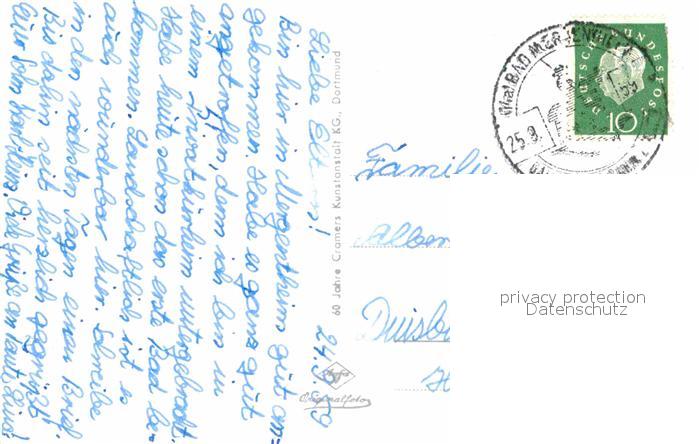 24.8.59
Liebe Eltern!
Bin hier in Mergentheim gut an=
gekommen. Habe es ganz gut
angetroffen, denn ich bin in
einem Privatkurheim untergebracht.
Habe heute schon das erste Bad be=
kommen. Landschaftlich ist es
auch wunderbar hier. Schreibe
in den nächsten Tagen einen Brief.
Bis dahin seid herzlich gegrüßt
Viele Grüße an
60 Jahre Cramers Kunstanstalt KG., Dortmund
Agfa
Originalfoto
BAD MERGENTHEIM
25.8.
DEUTSCHE BUNDESPOST
10
Familie
Duisb
privacy protection
Datenschutz